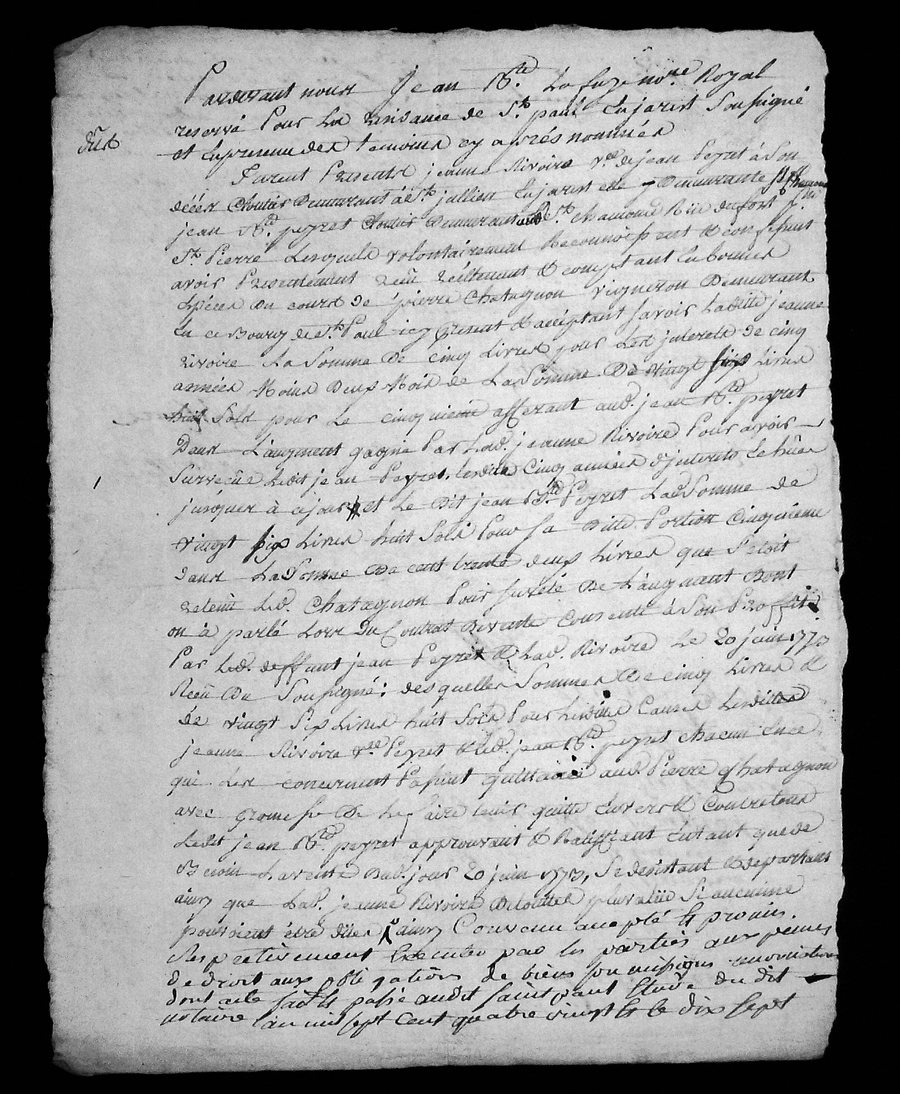 Pardevant nous Jean Bte. La fuze nore Royal
reservé Pour La Residance de St. paul En jarest Soussigné
et En presence des temoins cy apres nommés
dult
Furent Presents jeanne Rivoire vve de jean Peyret à Son
décés Cloutier Demeurant à St. jullien En jarest elle Demeurante St. Chamond
jean Bte. peyret Cloutier Demeurant aud. St. chamond Rüe du fort
St. Pierre Lesquels volontairement Reconnoissent & confessent
avoir Presentement reçu réellement & comptant En bonnes
Espèces Du cours de pierre Chatagnon vigneron Demeurant
En ce Bourg de St. Paul icy present & acceptant savoir Laditte jeanne
rivoire La Somme De cinq Livres pour Les interets de cinq
années Moins Deux Mois de La Somme De vingt six Livres
huit sols pour Le cinquieme afferant aud. jean Bte. peyret
Dans L'augment gagné Par Lad. jeanne Rivoire Pour avoir
Survecue Ledit jean Peyret, Lesdits Cinq années d'interets Echües
jusques à ce jour, et Le Dit jean Bte. Peyret Lad. Somme de
vingt six Livres huit Sols Pour sa Ditte Portion Cinquieme
dans La Somme De cent trente deux Livres que S'etoit
retenu Led. Chatagnon Pour sureté De L'augment Dont
on à parlé Lors Du Contrat De vente Consenti à Son Proffit
Par Led. deffunt jean Peyret & Lad. Rivoire Le 20 juin 1773
Reçu Du Soussigné; desquelles Sommes De cinq Livres &
de vingt six Livres huit sols Pour Lesdites Causes Lesdits
jeanne Rivoire vve Peyret & Led. jean Bte. peyret chacun En ce
qui Les concernent Passent quittance aud. Pierre Chatagnon
avec promesse De Le faire tenir quitte Envers & Contre tous
Ledit jean Bte. peyret approuvant & Ratiffiant En tant que de
Besoin La vente Dud. jour 20 juin 1773, Se desistant & departant
ainsy que Lad. jeanne Rivoire De touttes plus value Si aucunne
pouvoient être dües, ainsy Convenu accepté & promis
Respectivement Executer par les parties aux peines
de droit aux obligations de biens soumissions renonciations
dont acte fait & passé audit saint paul Etude du dit
notaire l'an mil sept cent quatre vingt & le dix sept